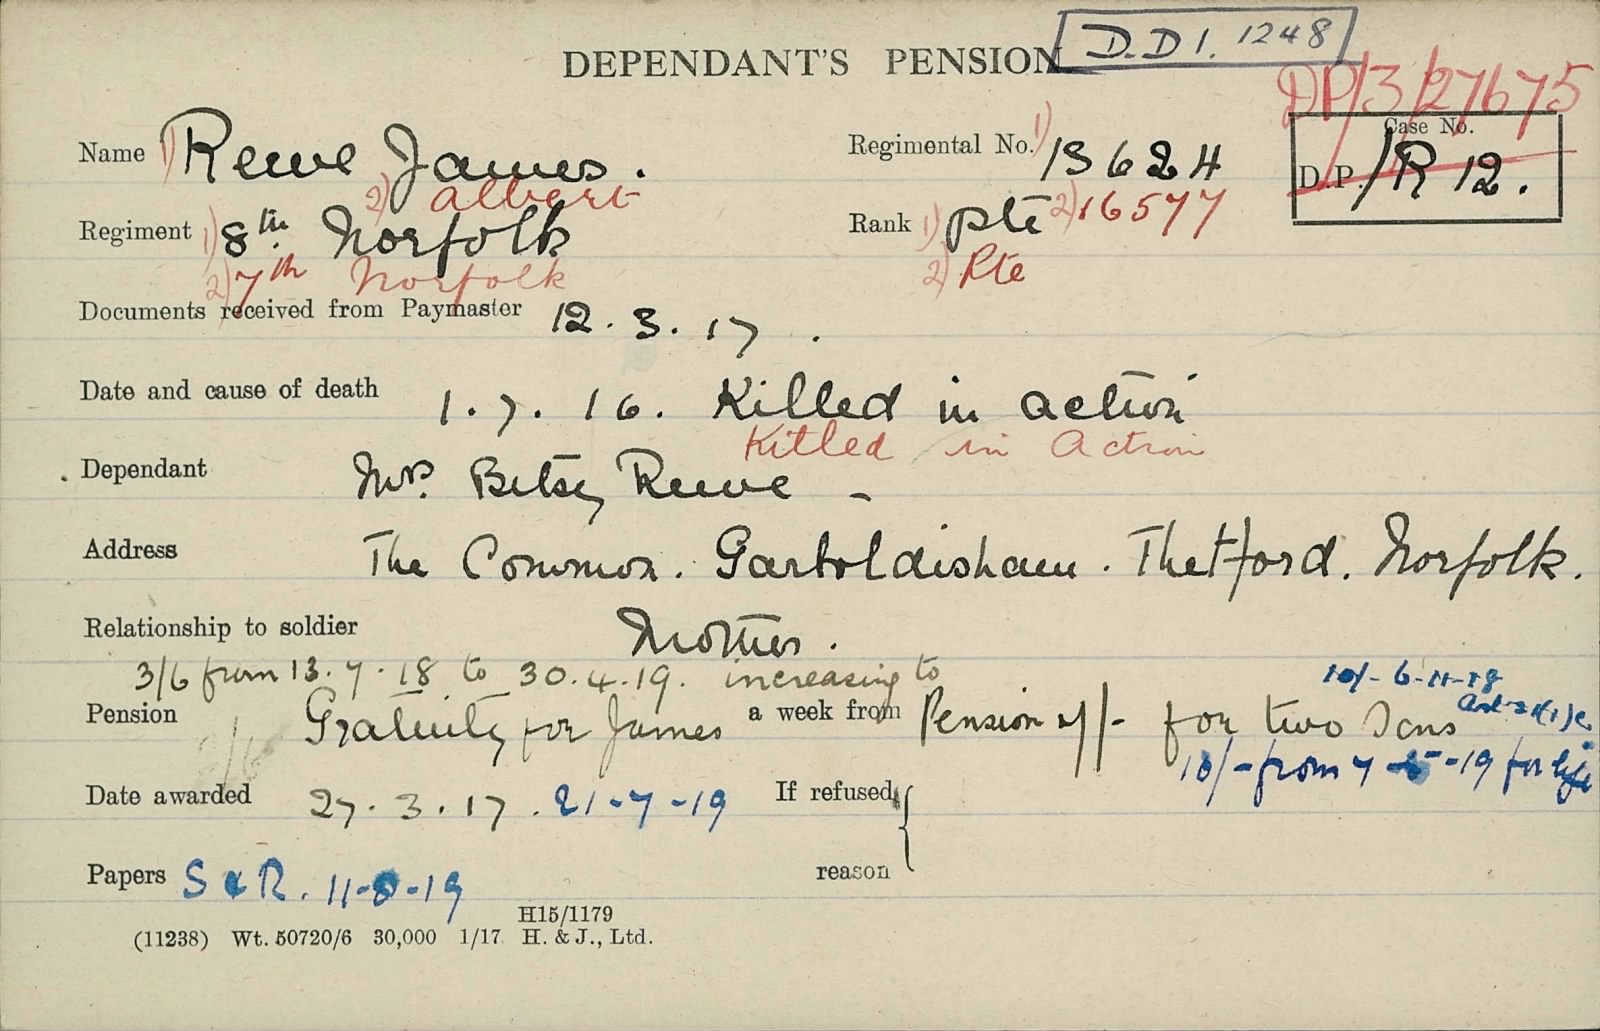 DEPENDANT'S PENSION D.D1. 1248
DP/3/27675
Name 1) Reeve James. Regimental No. 1) 13624 Case No.
2) Albert 2) 16577 D.P./R 12.
Regiment 1) 8th Norfolk Rank 1) Pte
2) 7th Norfolk 2) Pte
Documents received from Paymaster 12.3.17.
Date and cause of death 1.7.16. Killed in action
Killed in Action
Dependant Mrs. Betsy Reeve -
Address The Common. Garboldisham. Thetford. Norfolk.
Relationship to soldier Mother.
3/6 from 13.7.18 to 30.4.19. increasing to 10/- 6-11-18
Pension Gratuity for James a week from Pension for two Sons
3/6 10/- from 7 -19 for life
Date awarded 27.3.17. 21-7-19 If refused,
reason
Papers S & R. 11-8-19
H15/1179
(11238) Wt. 50720/6 30,000 1/17 H. & J., Ltd.